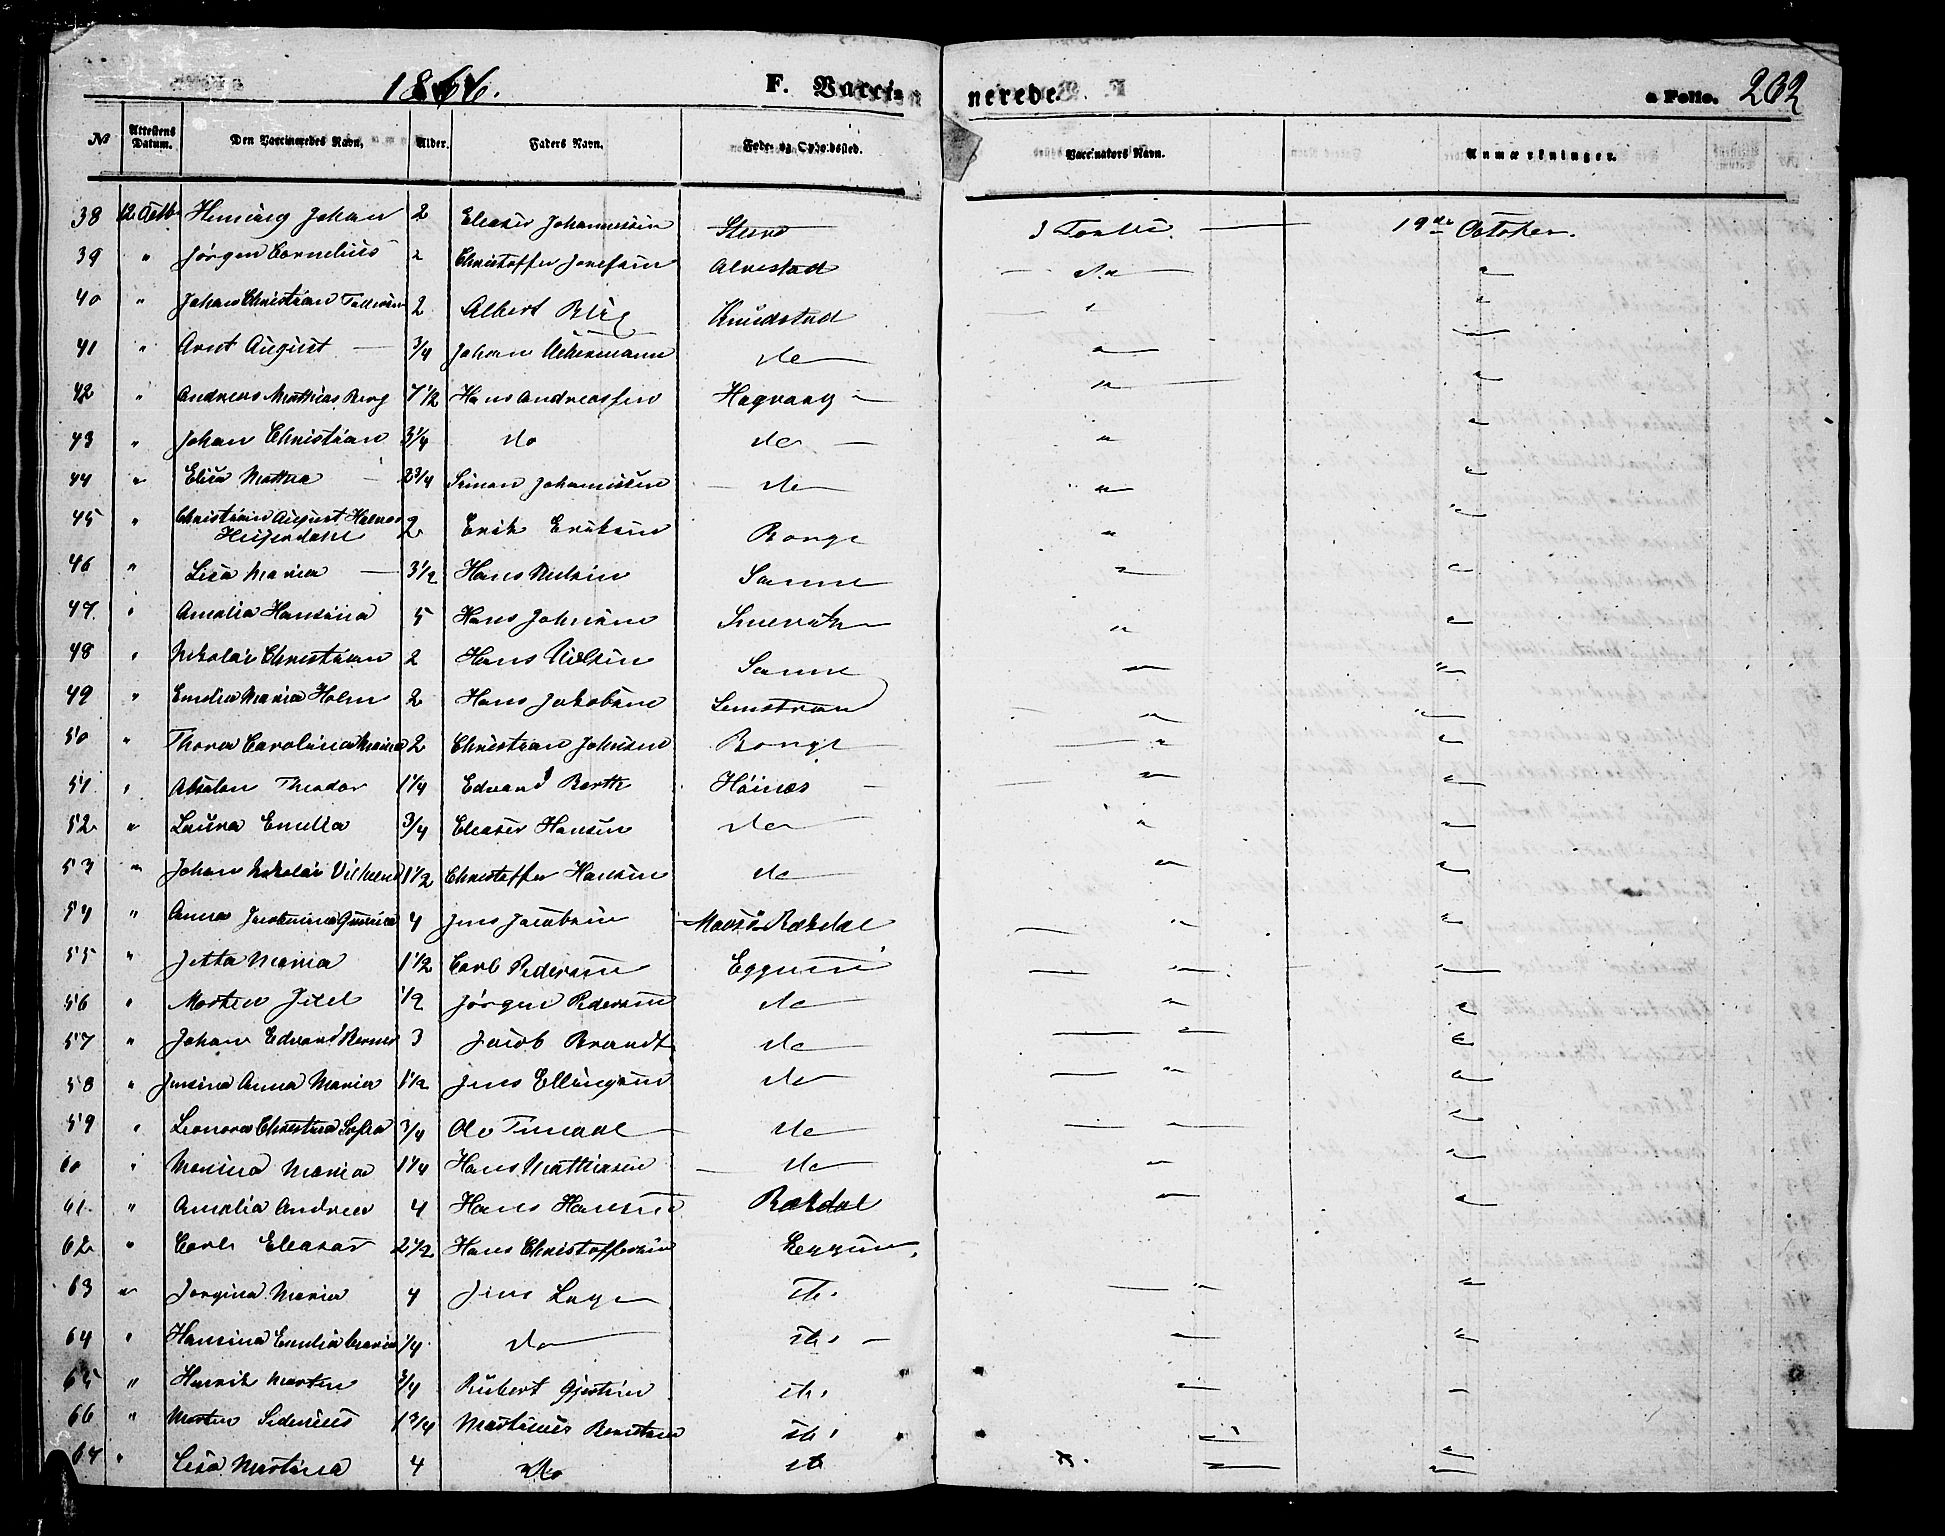 1866. F. Vacci- nerede. a Folio. 202
No Attestens Datum. Den Vaccineredes Navn. Alder. Faders Navn. Føde- og Opholdssted. Vaccinators Navn. Anmærkninger.
38 12 Octb Hening Johan 2 Eleaser Johannessen Steine J 19de October.
39 " Jørgen Cornelius 2 Christoffer Josefsen Alvestad do "
40 " Johan Christian 2 Albert Knudstad " "
41 " Arnt August 3/4 Johan do " "
42 " Andreas Mathias Berg 7 1/2 Hans Andreassen Hagvaag " "
43 " Johan Christian 3 1/4 do do " "
44 " Elisa Mathea 2 3/4 Simon Johannissen do " "
45 " Christian August
Heijerdahl 2 Erik Eriksen Borge " "
46 " Lisa Maria 3 1/2 Hans Nielsen Sanne " "
47 " Amalia Hansina 5 Hans Johnsen " "
48 " Nikolai Christian 2 Hans Nielsen Sanne " "
49 " Emelia Maria Holm 2 Hans Jakobsen Limstran " "
50 " Thora Carolina Maria 2 Christian Johnsen Borge " "
51 " Absalon Theodor 1 1/4 Edvard Barth Höinæs " "
52 " Laura Emelia 3/4 Eleaser Hansen do " "
53 " Johan Nikolai 1 1/2 Christoffer Hansen do " "
54 " Anna 4 Jens Jacobsen Rækdal " "
55 " Jetta Maria 1 1/2 Carl Pedersen Eggum " "
56 " Morten 1/2 Jörgen Pedersen do " "
57 " Johan Edvard 3 Jacob Brandt do " "
58 " Jensina Anna Maria 1 1/2 Jens Ellingsen do " "
59 " Leonora Christina Sofia 3/4 Ole do " "
60 " Maria 1 1/4 Hans Mathiasen do " "
61 " Amalia Andrea 4 Hans Hansen Rækdal " "
62 " Carl Eleasar 2 1/2 Hans Christoffersen Eggum
63 " Jorgina Maria 4 Jens do. " "
64 " Hansina Emelia Maria 1/4 do do. " "
65 " Henrik Morten 3/4 Rubert do. " "
66 " Morten Sidenius 1 3/4 Martinus do. " "
67 " Lisa Martina 4 do do " "